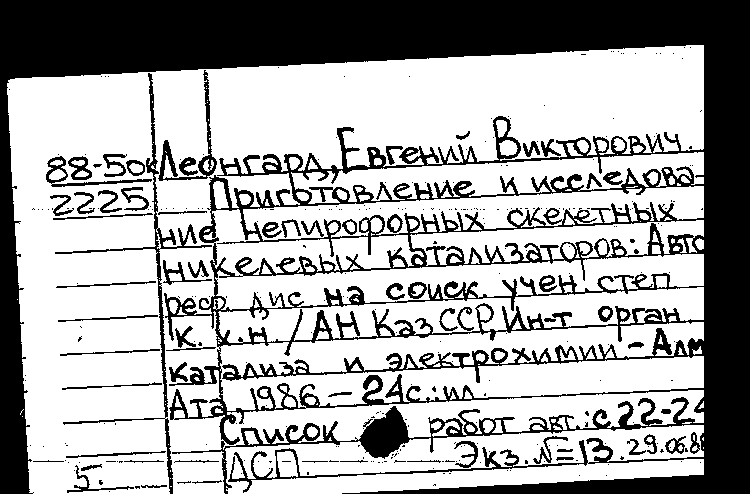 88-5ок Леонгард, Евгений Викторович.
2225 Приготовление и исследова-
ние непирофорных скелетных
никелевых катализаторов: Авто
реф. дис на соиск. учен. степ
к. х.н / АН Каз ССР, Ин-т орган.
катализа и электрохимии. - Алм
Ата, 1986. - 24с.: ил.
Список работ авт.: с. 22-24
ДСП. Экз. №=13. 29.06.88
5.